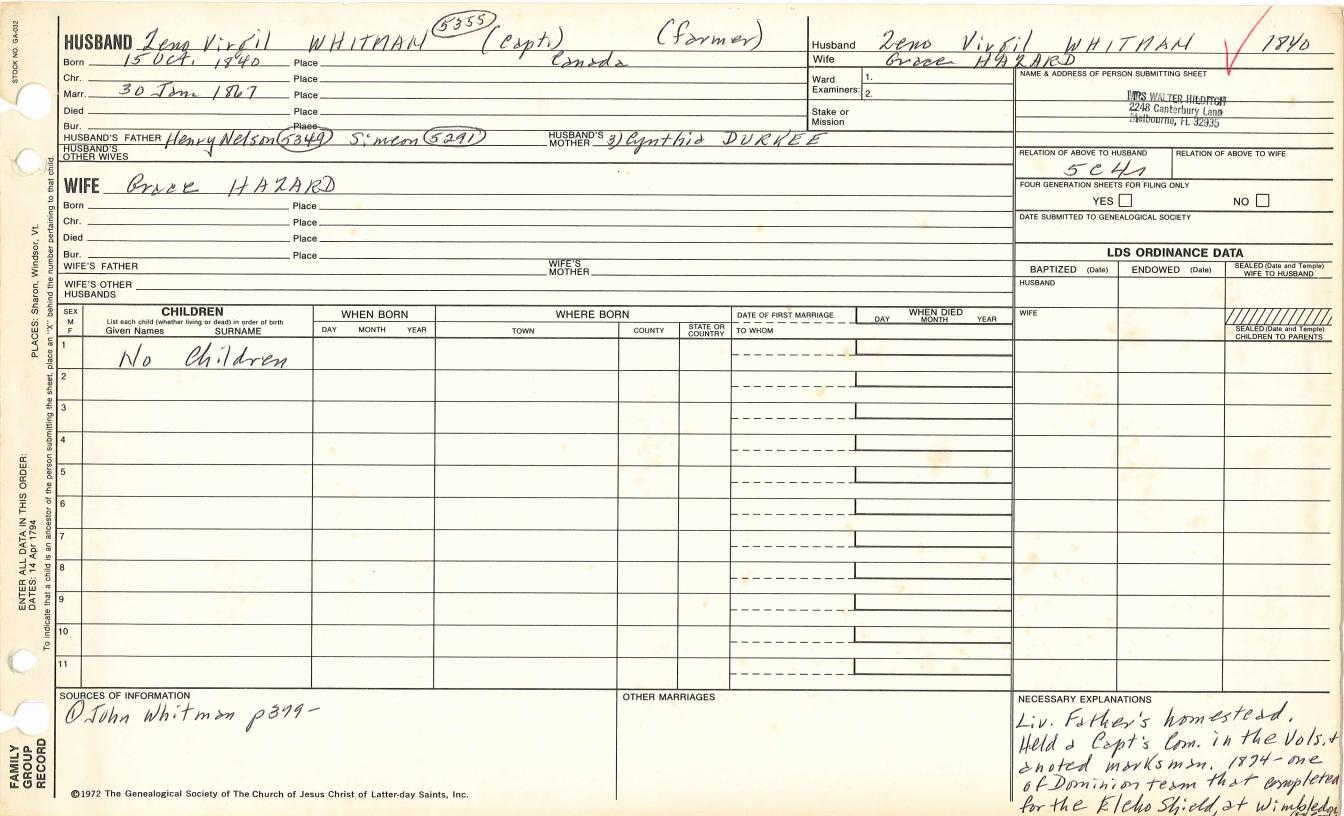 STOCK NO. GA-032
HUSBAND Zeno Virgil WHITMAN 5355 (Capt.) (farmer)
Born 15 Oct. 1840 Place Canada
Chr. Place
Marr. 30 Jan 1867 Place
Died Place
Bur. Place
HUSBAND'S FATHER Henry Nelson 5349 Simeon 5291 HUSBAND'S MOTHER 3) Cynthia DURKEE
HUSBAND'S OTHER WIVES
WIFE Grace HAZARD
Born Place
Chr. Place
Died Place
Bur. Place
WIFE'S FATHER WIFE'S MOTHER
WIFE'S OTHER HUSBANDS
Husband Zeno Virgil WHITMAN 1840
Wife Grace HAZARD
Ward Examiners: 1.
2.
Stake or Mission
NAME & ADDRESS OF PERSON SUBMITTING SHEET
MRS WALTER HILDITCH
2248 Canterbury Lane
Melbourne, FL 32935
RELATION OF ABOVE TO HUSBAND RELATION OF ABOVE TO WIFE
5C4r
FOUR GENERATION SHEETS FOR FILING ONLY
YES NO
DATE SUBMITTED TO GENEALOGICAL SOCIETY
LDS ORDINANCE DATA
BAPTIZED (Date) ENDOWED (Date) SEALED (Date and Temple) WIFE TO HUSBAND
HUSBAND
WIFE
SEALED (Date and Temple) CHILDREN TO PARENTS
SEX M F
CHILDREN
List each child (whether living or dead) in order of birth
Given Names SURNAME
WHEN BORN
DAY MONTH YEAR
WHERE BORN
TOWN COUNTY STATE OR COUNTRY
DATE OF FIRST MARRIAGE
TO WHOM
WHEN DIED
DAY MONTH YEAR
1 No Children
2
3
4
5
6
7
8
9
10
11
SOURCES OF INFORMATION
① John Whitman p379-
OTHER MARRIAGES
NECESSARY EXPLANATIONS
Liv. Father's homestead.
Held a Capt's Com. in the Vols. +
a noted marksman. 1874 - one
of Dominion team that completed
for the Elcho Shield, at Wimbledon
©1972 The Genealogical Society of The Church of Jesus Christ of Latter-day Saints, Inc.
FAMILY
GROUP
RECORD
ENTER ALL DATA IN THIS ORDER:
DATES: 14 Apr 1794 PLACES: Sharon, Windsor, Vt.
To indicate that a child is an ancestor of the person submitting the sheet, place an "X" behind the number pertaining to that child.